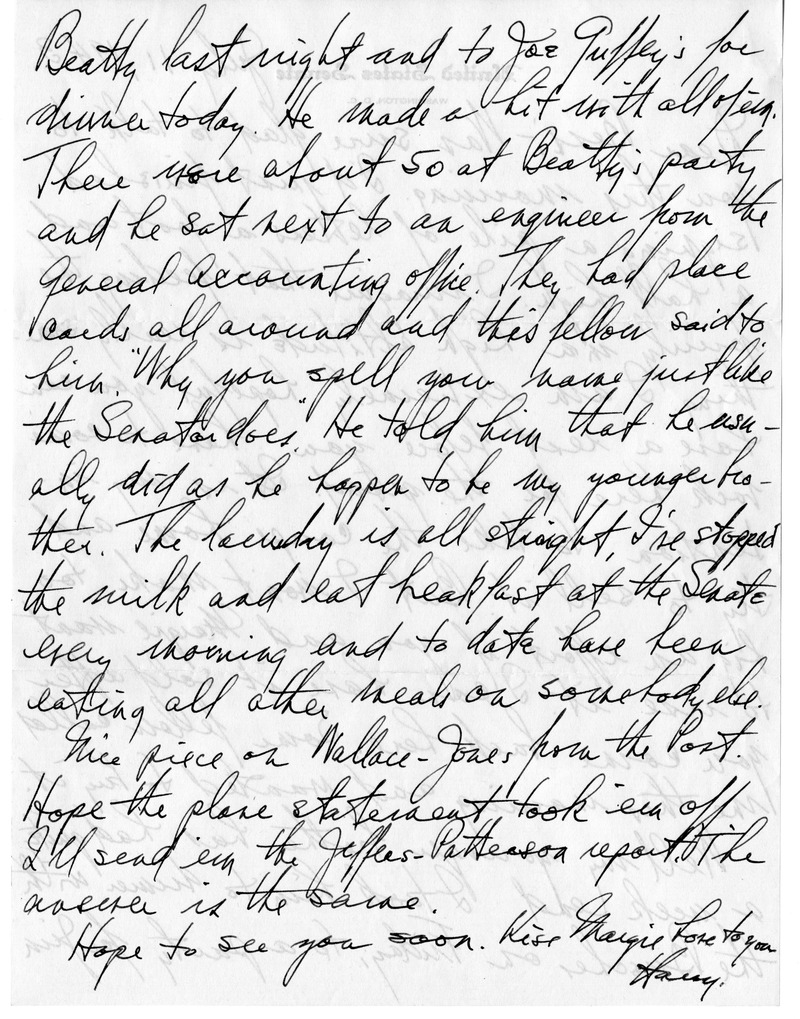 Beatty last night and to Joe Guffey's for
dinner today. He made a hit with all of 'em.
There were about 50 at Beatty's party
and he sat next to an engineer from the
General Accounting office. They had place
cards all around and this fellow said to
him. "Why you spell your name just like
the Senator does." He told him that he usu-
ally did as he happen to be my younger bro-
ther. The laundry is all straight, I've stopped
the milk and eat breakfast at the Senate
every morning and to date have been
eating all other meals on somebody else.
Nice piece on Wallace-Jones from the Post.
Hope the plane statement took 'em off
I'll send 'em the Jeffers-Patterson report. The
answer is the same.
Hope to see you soon. Kiss Margie Love to you
Harry.
United States Senate
WASHINGTON, D.C.